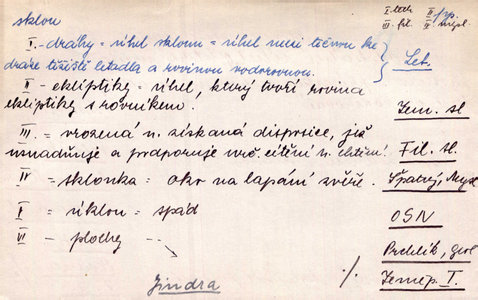 sklon
I. tech II. 
III. fil. IV. mysl.
I. - dráhy = úhel sklonu = úhel mezi tečnou ke
dráze těžiště letadla a rovinou vodorovnou.
Let.
II - ekliptiky = úhel, který tvoří rovina
ekliptiky s rovníkem.
Zem. sl
III. = vrozená n. získaná disposice, jež
usnadňuje a podporuje urč. cítění n. chtění.
Fil. sl.
IV = sklonka = oko na lapání zvěře.
Špatný, Mysl
V = úklon = spád
OSN
VI - plochy - -
Prchlík, geol
Jindra
·/.
Zeměp. I.